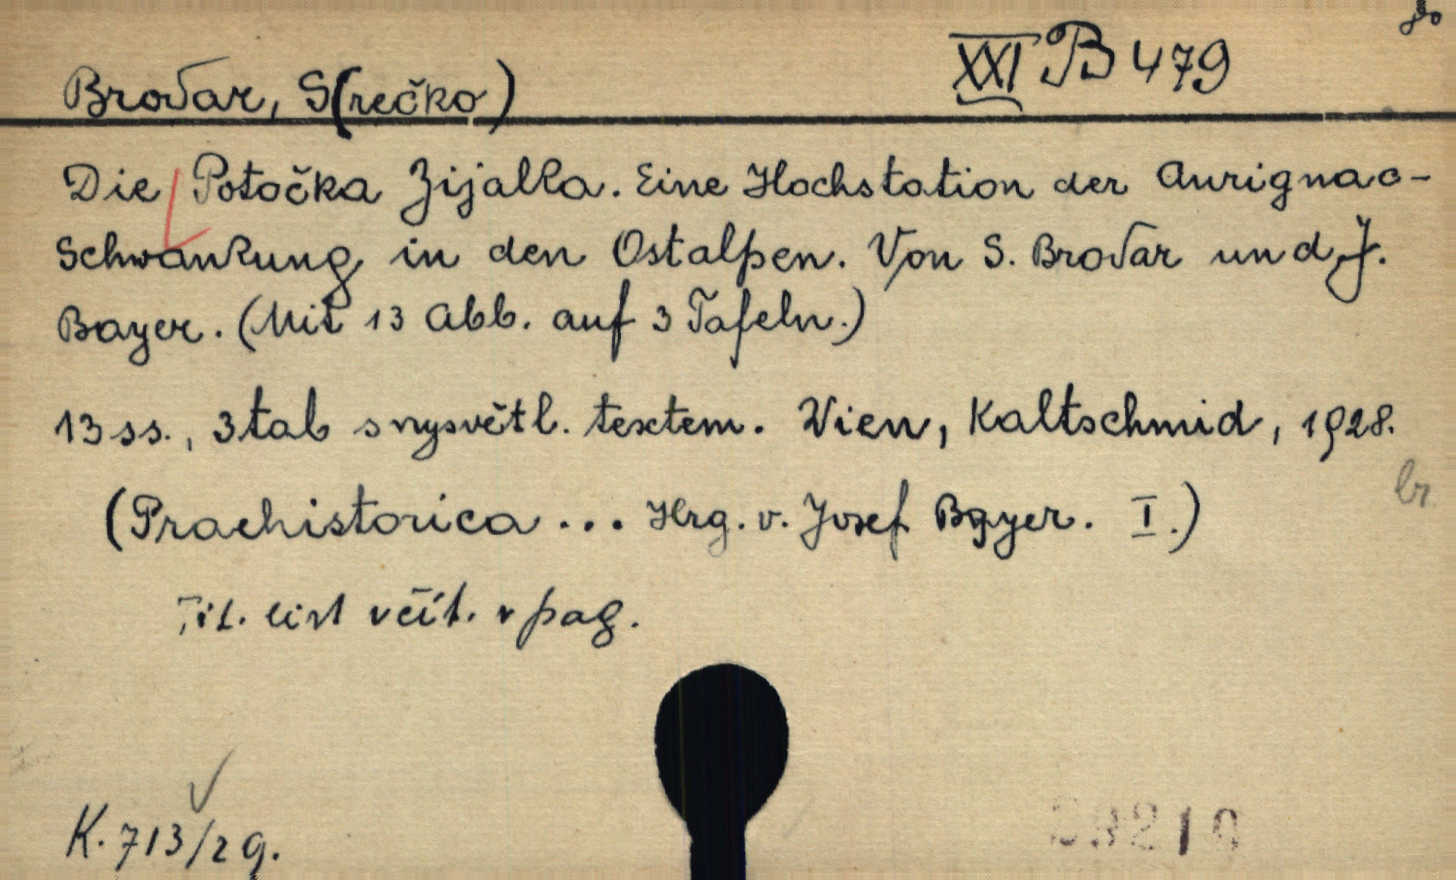 XXI B 479
Brodar, S(rečko)
Die Potočka Zijalka. Eine Hochstation der Aurignac-
Schwankung in den Ostalpen. Von S. Brodar und J.
Bayer. (Mit 13 Abb. auf 3 Tafeln.)
13 ss., 3 tab s vysvětl. textem. Wien, Kaltschmid, 1928.
br
(Praehistorica ... Hrg. v. Josef Bayer. I.)
Tit. list včít. v pag.
K. 713/29.